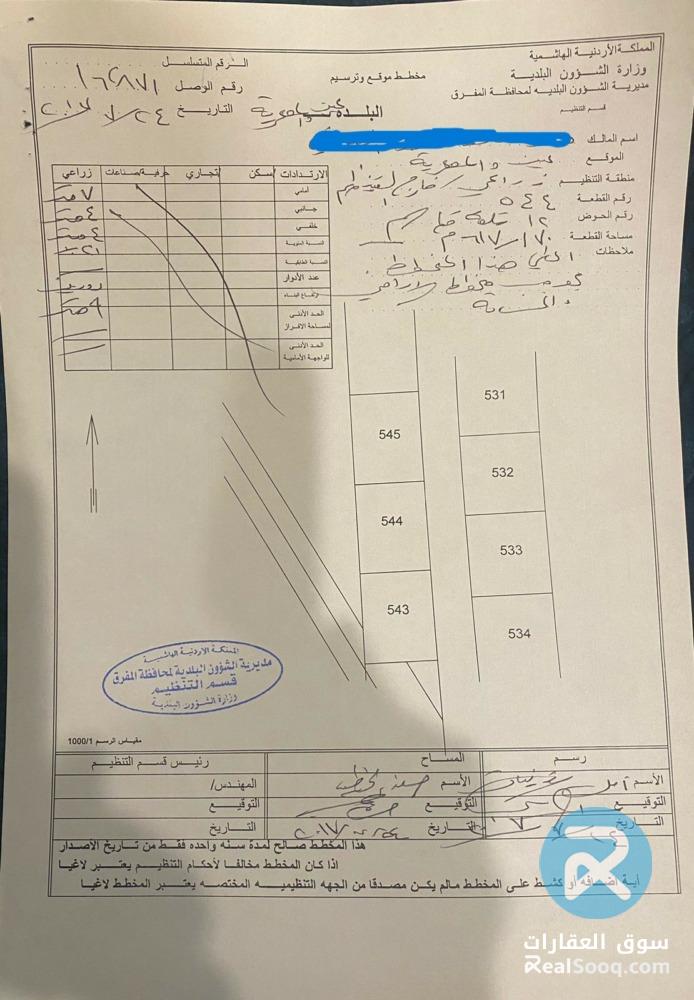 المملكة الأردنية الهاشمية
وزارة الشؤون البلدية
مديرية الشؤون البلديه لمحافظة المفرق
قسم التنظيم
مخطط موقع وترسيم
الرقم المتسلسل
رقم الوصل ١٦٢٨٧١
التاريخ ٢٤ / ٧ / ٢٠١٧
البلدة
اسم المالك
الموقع
منطقة التنظيم زراعي خارج التنظيم
رقم القطعة ٥٤٤
رقم الحوض ١٢
مساحة القطعة
ملاحظات اعطي هذا المخطط
بموجب مخطط الاراضي
والمساحة
الارتدادات سكن تجاري حرفية صناعات زراعي
أمامي ٧ متر
جانبي ٤ متر
خلفي ٤ متر
النسبة المئوية
النسبة الطابقية
عدد الأدوار دورين
ارتفاع البناء
الحد الأدنى لمساحة الافراز
الحد الأدنى للواجهة الأمامية
531
545
532
544
533
543
534
المملكة الاردنية الهاشمية
مديرية الشؤون البلدية لمحافظة المفرق
قسم التنظيم
وزارة الشؤون البلدية
مقياس الرسم 1000/1
رسم المساح رئيس قسم التنظيم
الأسم الأسم المهندس/
التوقيع التوقيع التوقيع
التاريخ التاريخ التاريخ
هذا المخطط صالح لمدة سنه واحده فقط من تاريخ الاصدار
اذا كان المخطط مخالفا لأحكام التنظيم يعتبر لاغيا
أية اضافه أو كشط على المخطط مالم يكن مصدقا من الجهه التنظيميه المختصه يعتبر المخطط لاغيا
سوق العقارات
RealSooq.com